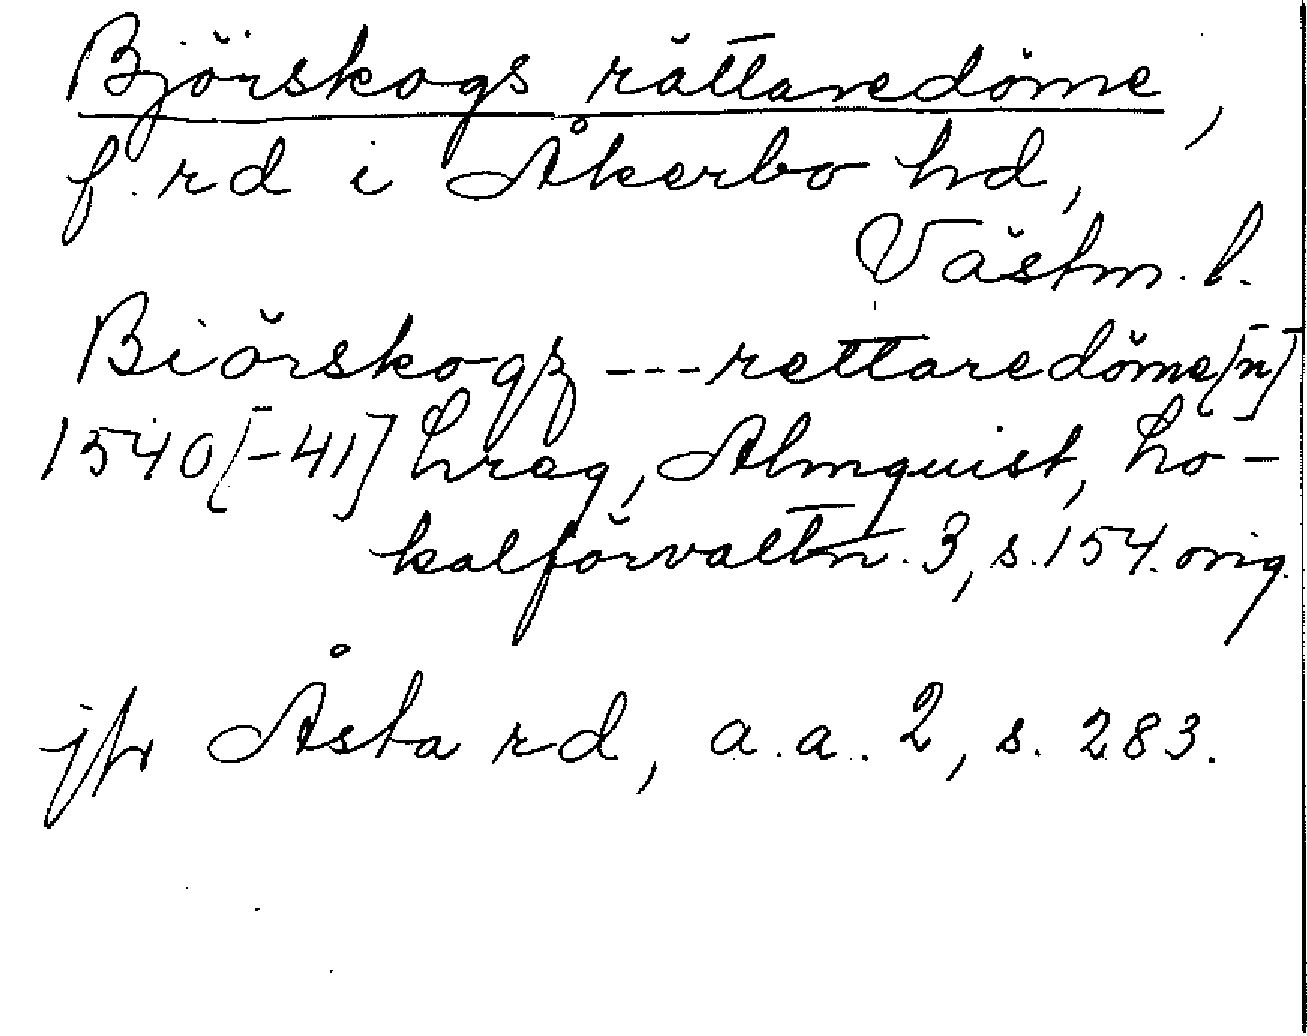 Björskogs rättaredöme,
f. rd i Åkerbo hd,
Västm. l.
Biörskogz --- rettaredöme[n]
1540[-41] hreg, Almquist, Lo-
kalförvaltn. 3, s. 154. orig.
jfr Åsta rd, a.a. 2, s. 283.